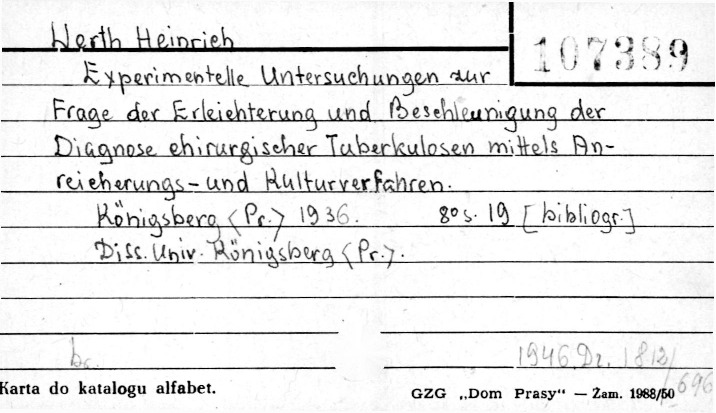 Werth Heinrich
107389
Experimentelle Untersuchungen zur
Frage der Erleichterung und Beschleunigung der
Diagnose chirurgischer Tuberkulosen mittels An-
reicherungs- und Kulturverfahren.
Königsberg <Pr.> 1936. 8° s. 19 [bibliogr.]
Diss. Univ. Königsberg <Pr.>.
1946 Dr. 1812/
696
Karta do katalogu alfabet.
GZG „Dom Prasy" — Zam. 1988/50